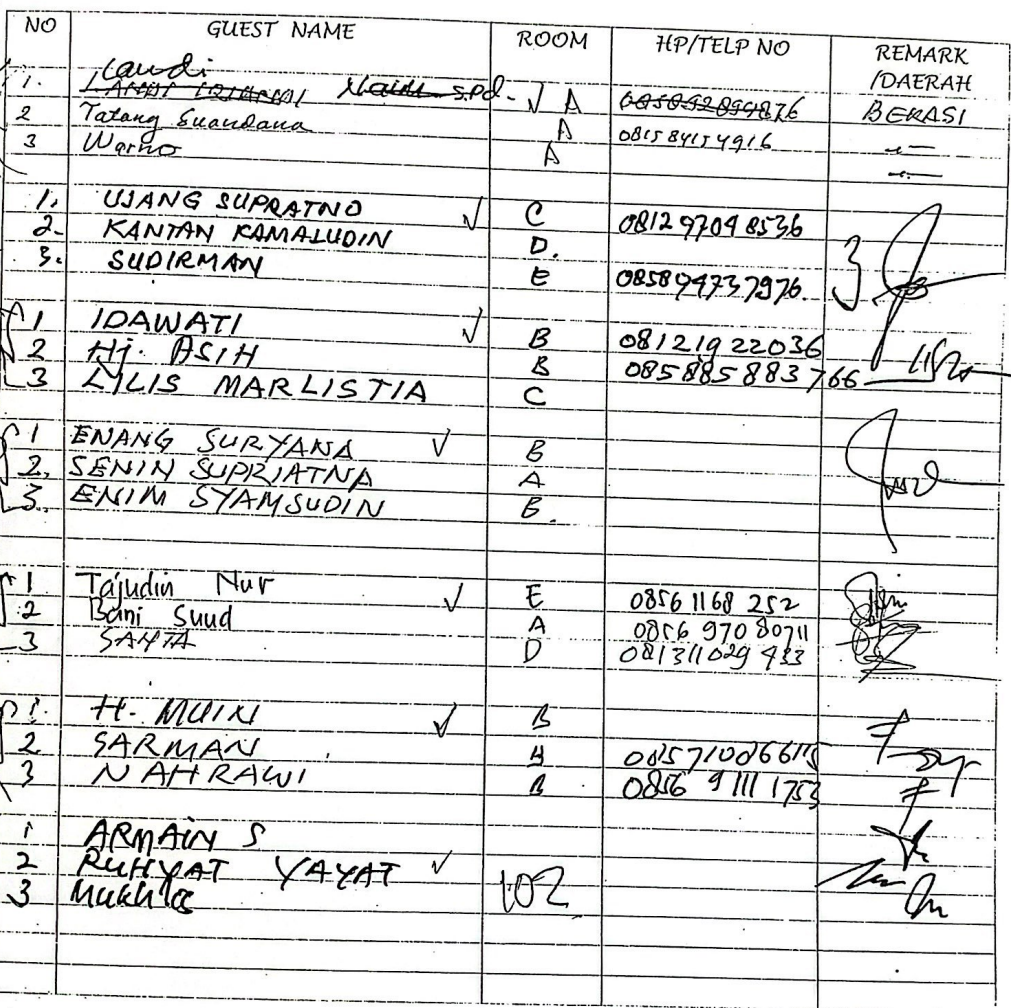 NO GUEST NAME ROOM HP/TELP NO REMARK /DAERAH
1. Caudi S.Pd. √ A BEKASI
2 Tatang Suandana A 081584154916
3 Warno A
1. UJANG SUPRATNO √ C 081297048536
2- KANTAN KAMALUDIN D.
3. SUDIRMAN E 085894737976 3.
1 IDAWATI √ B 08121922036
2 Hj. ASIH B 085885883766
3 LILIS MARLISTIA C
1 ENANG SURYANA √ B
2. SENIN SUPRIATNA A
3. ENIM SYAMSUDIN B.
1 Tajudin Nur √ E 08561168 252
2 Bani Suud A 0856 970 80711
3 SANTA D 081311029 433
1. H. MUIN √ B
2 SARMAN A 085710866115
3 NAHRAWI B 0856 9111 1753
1 ARMAIN S
2 RUHYAT YAYAT √
3 Mukhlas 102